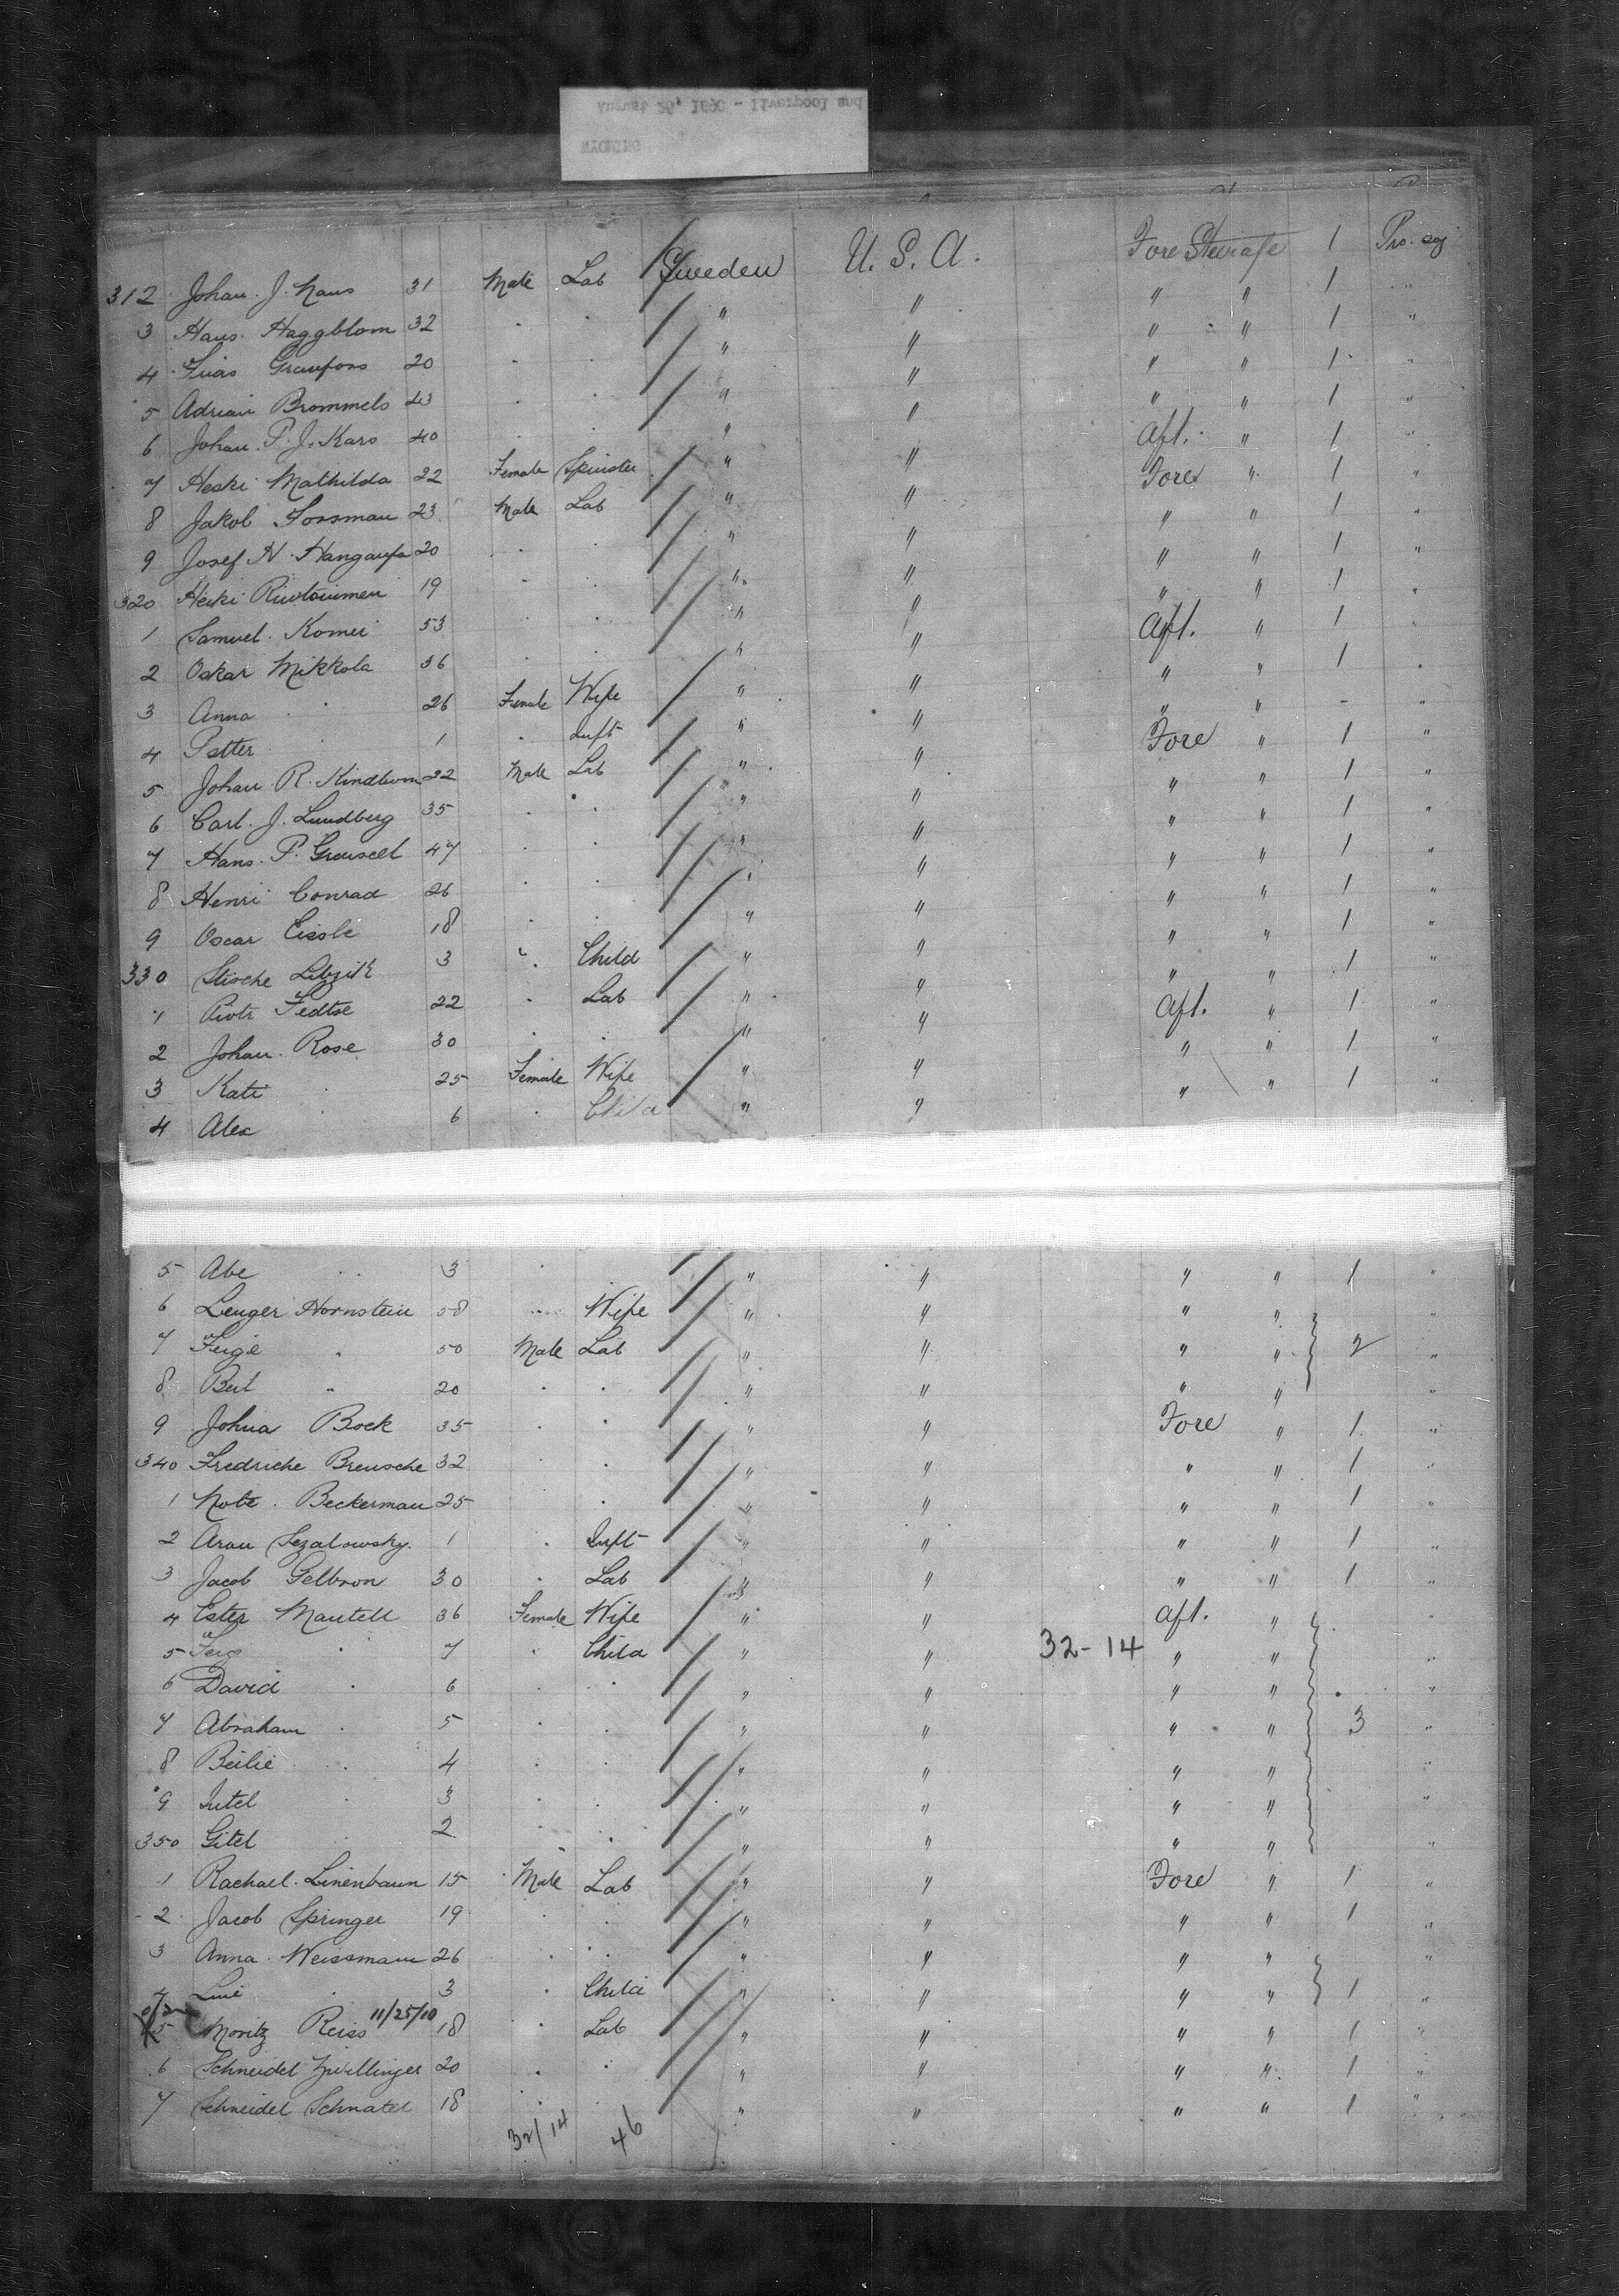 August 26, 1890 - Liverpool and
WYOMING
312 Johan. J. Naus 31 Male Lab Sweden U. S. A. Fore Steerage 1 Pro. soj
3 Haus. Haggblom 32 . . " " " " 1 "
4 20 . . " " " " 1 "
5 Adrian Brommels 43 . . " " " " 1 "
6 Johan. P. J. Karo 40 . . " " " " 1 "
7 Heski Mathilda 22 Female Spinster " " Aft. " 1 "
8 Jakob Forsman 23 Male Lab " " Fore " 1 "
9 Josef H. 20 . . " " " " 1 "
320 Heiki 19 . . " " " " 1 "
1 Samuel. 53 . . " " " " 1 "
2 Oskar Mikkola 36 . . " " Aft. " 1 "
3 Anna " 26 Female Wife " " " " 1 "
4 Petter 1 . Inft " " " " - "
5 Johan R. 22 Male Lab " " Fore " 1 "
6 Carl. J. Lundberg 35 . . " " " " 1 "
7 Hans. P. 47 . . " " " " 1 "
8 Henri Conrad 26 . . " " " " 1 "
9 Oscar 18 . . " " " " 1 "
330 3 " Child " " " " 1 "
1 22 . Lab " " " " 1 "
2 Johan. Rose 30 . . " " Aft. " 1 "
3 Kati . 25 Female Wife " " " " 1 "
4 Alex 6 . Child " " " " 1 "
5 Abe " 3 . . " " " " 1 "
6 Lenger Hornstein 58 " Wife " " " " "
7 Feige " 50 Male Lab " " " " 2 "
8 Beil " 20 . . " " " " "
9 Johua Bock 35 . . " " Fore " 1 "
340 Fredriche Breusche 32 . . " " " " 1 "
1 Note. Beckerman 25 . . " " " " 1 "
2 Aran 1 . Inft " " " " 1 "
3 Jacob Gelbron 30 . Lab " " " " 1 "
4 Ester Mantell 36 Female Wife " " Aft. " "
5 Feig " 7 . Child " " 32-14 " " "
6 David . 6 . . " " " " "
7 Abraham . 5 . . " " " " 3 "
8 Beilie . 4 . . " " " " "
9 Jutel . 3 . . " " " " "
350 Gitel . 2 . . " " " " "
1 Rachael. Linenbaum 15 Male Lab " " Fore " 1 "
2 Jacob Springer 19 . . " " " " 1 "
3 Anna. Weissmann 26 . . " " " " "
4 . 3 . Child " " " " 1 "
5 Moritz Reiss 11/25/10 18 . Lab " " " " 1 "
6 Schneidel Zwillinger 20 . . " " " " 1 "
7 Schneidel Schnatel 18 . . " " " " 1 "
32/14 46